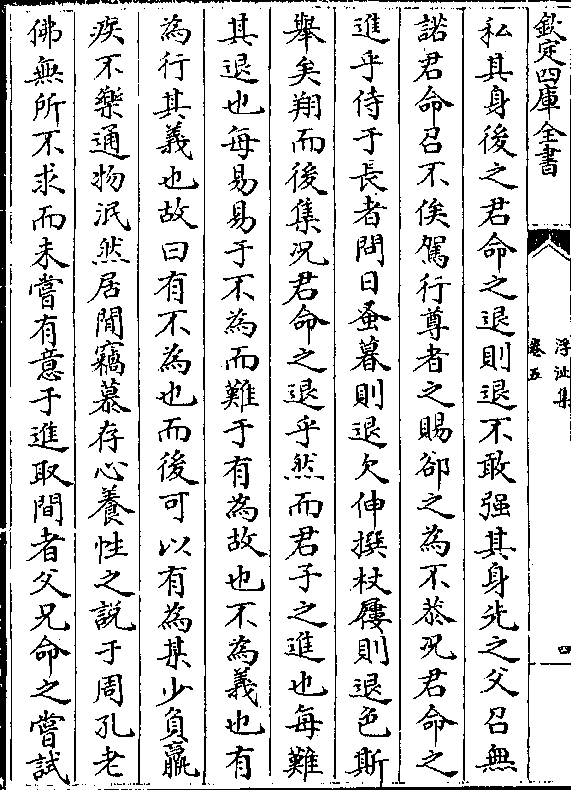 欽定四庫全書
浮沚集
卷五
四
私其身後之君命之退則退不敢强其身先之父召無
諾君命召不俟駕行尊者之賜卻之為不恭况君命之
進乎侍于長者問日蚤暮則退欠伸撰杖屨則退色斯
舉矣翔而後集况君命之退乎然而君子之進也每難
其退也每易易于不為而難于有為故也不為義也有
為行其義也故曰有不為也而後可以有為某少負羸
疾不樂通物泯然居閒竊慕存心養性之説于周孔老
佛無所不求而未嘗有意于進取間者父兄命之嘗試